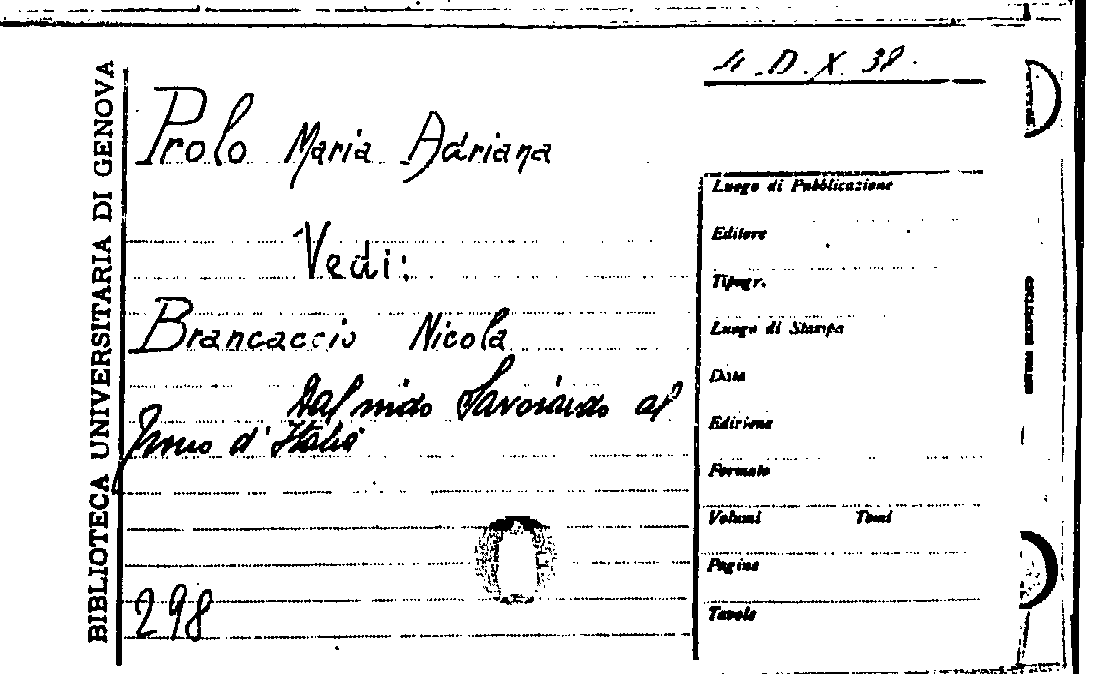 BIBLIOTECA UNIVERSITARIA DI GENOVA
4. D. X. 38.
Prolo Maria Adriana
Vedi:
Brancaccio Nicola
Dal nido Savoiardo al
Trono d'Italia
298
Luogo di Pubblicazione
Editore
Tipogr.
Luogo di Stampa
Data
Edizione
Formato
Volumi Tomi
Pagine
Tavole